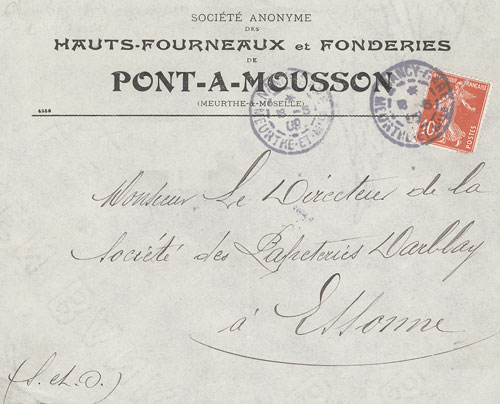 SOCIÉTÉ ANONYME
DES
HAUTS-FOURNEAUX et FONDERIES
DE
PONT-A-MOUSSON
(MEURTHE-&-MOSELLE)
4556
NANCY-GARE
MEURTHE-ET-M
NANCY-GARE
MEURTHE
10
Monsieur Le Directeur de la
Société des Papeteries Darblay
à Essonne
(S. et O.)